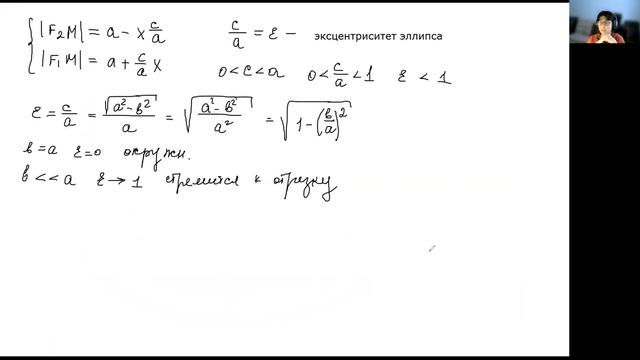 |F₂M| = a - x c/a
|F₁M| = a + c/a x
c/a = ε - эксцентриситет эллипса
0 < c < a   0 < c/a < 1   ε < 1
ε = c/a = √(a² - в²)/a = √((a² - в²)/a²) = √(1 - (в/a)²)
в = a   ε = 0   окружн.
в << a   ε → 1   стремится к отрезку